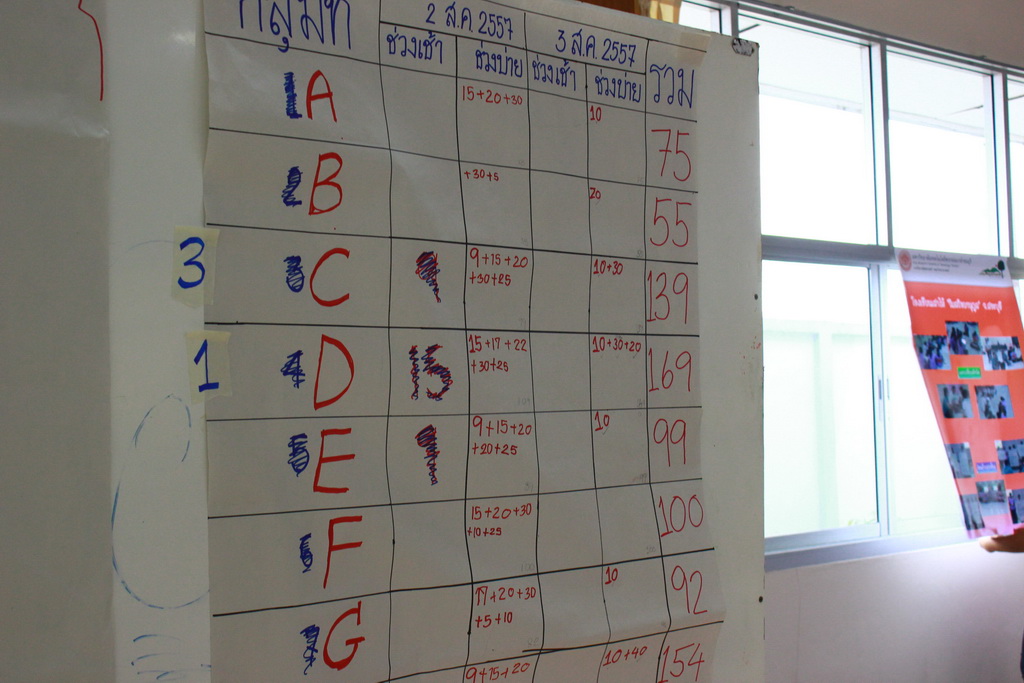 กลุ่มที่ 2 ส.ค. 2557 3 ส.ค. 2557 รวม
ช่วงเช้า ช่วงบ่าย ช่วงเช้า ช่วงบ่าย
A 15+20+30 10 75
B +30+5 20 55
3 C 9+15+20 10+30 139
+30+25
1 D 15+17+22 10+30+20 169
+30+25
E 9+15+20 10 99
+20+25
F 15+20+30 100
+10+25
G 17+20+30 10 92
+5+10
9+15+20 10+40 154